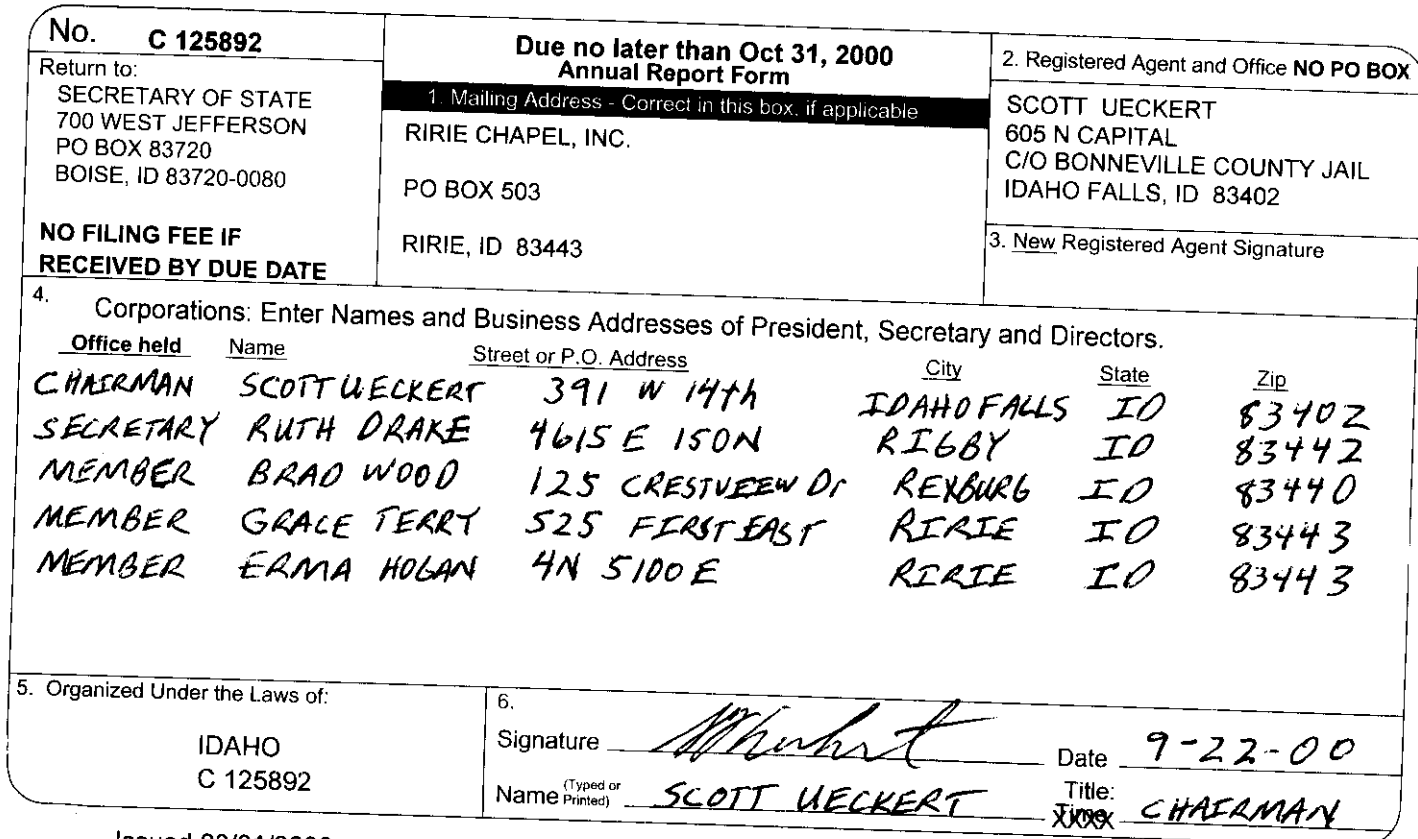 No. C 125892
Return to:
SECRETARY OF STATE
700 WEST JEFFERSON
PO BOX 83720
BOISE, ID 83720-0080
NO FILING FEE IF
RECEIVED BY DUE DATE
Due no later than Oct 31, 2000
Annual Report Form
1. Mailing Address - Correct in this box, if applicable
RIRIE CHAPEL, INC.
PO BOX 503
RIRIE, ID 83443
2. Registered Agent and Office NO PO BOX
SCOTT UECKERT
605 N CAPITAL
C/O BONNEVILLE COUNTY JAIL
IDAHO FALLS, ID 83402
3. New Registered Agent Signature
4. Corporations: Enter Names and Business Addresses of President, Secretary and Directors.
Office held Name Street or P.O. Address City State Zip
CHAIRMAN SCOTT UECKERT 391 W 14th IDAHO FALLS ID 83402
SECRETARY RUTH DRAKE 4615 E 150N RIGBY ID 83442
MEMBER BRAD WOOD 125 CRESTVEEW Dr REXBURG ID 83440
MEMBER GRACE TERRY 525 FIRST EAST RIRIE ID 83443
MEMBER ERMA HOGAN 4N 5100 E RIRIE ID 83443
5. Organized Under the Laws of:
IDAHO
C 125892
6.
Signature Date 9-22-00
Name (Typed or Printed) SCOTT UECKERT Title: CHAIRMAN